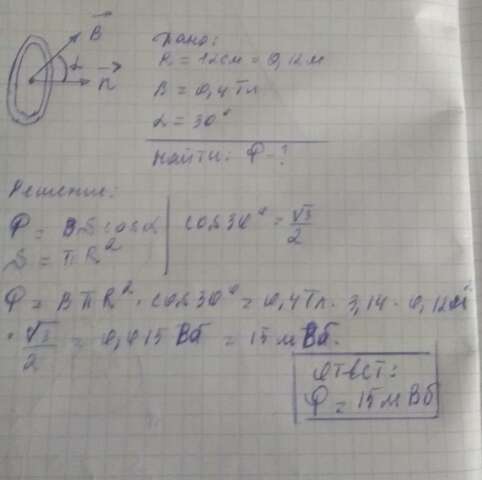 B
α
n
Дано:
R = 12см = 0,12м
B = 0,4Тл
α = 30°
Найти: Ф-?
Решение:
Ф = BScosα | cos30° = √3/2
S = πR²
Ф = BπR²·cos30° = 0,4Тл · 3,14 · 0,12м²
· √3/2 = 0,015 Вб = 15 мВб.
Ответ:
Ф = 15 мВб